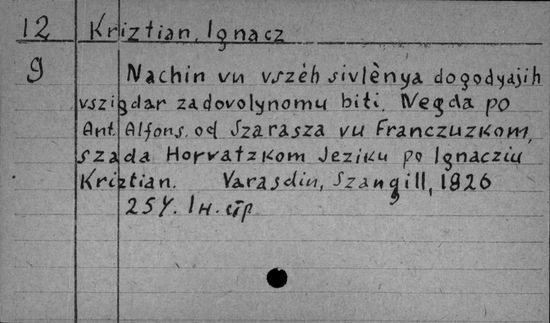 12 Kriztian, Ignacz
9 Nachin vu vszéh sivlènya dogodyajih
vszigdar zadovolynomu biti. Negda po
Ant. Alfons. od Szarasza vu Franczuzkom,
szada Horvatzkom Jeziku po Ignacziu
Kriztian. Varasdin, Szangill, 1826
254. 1н. стр